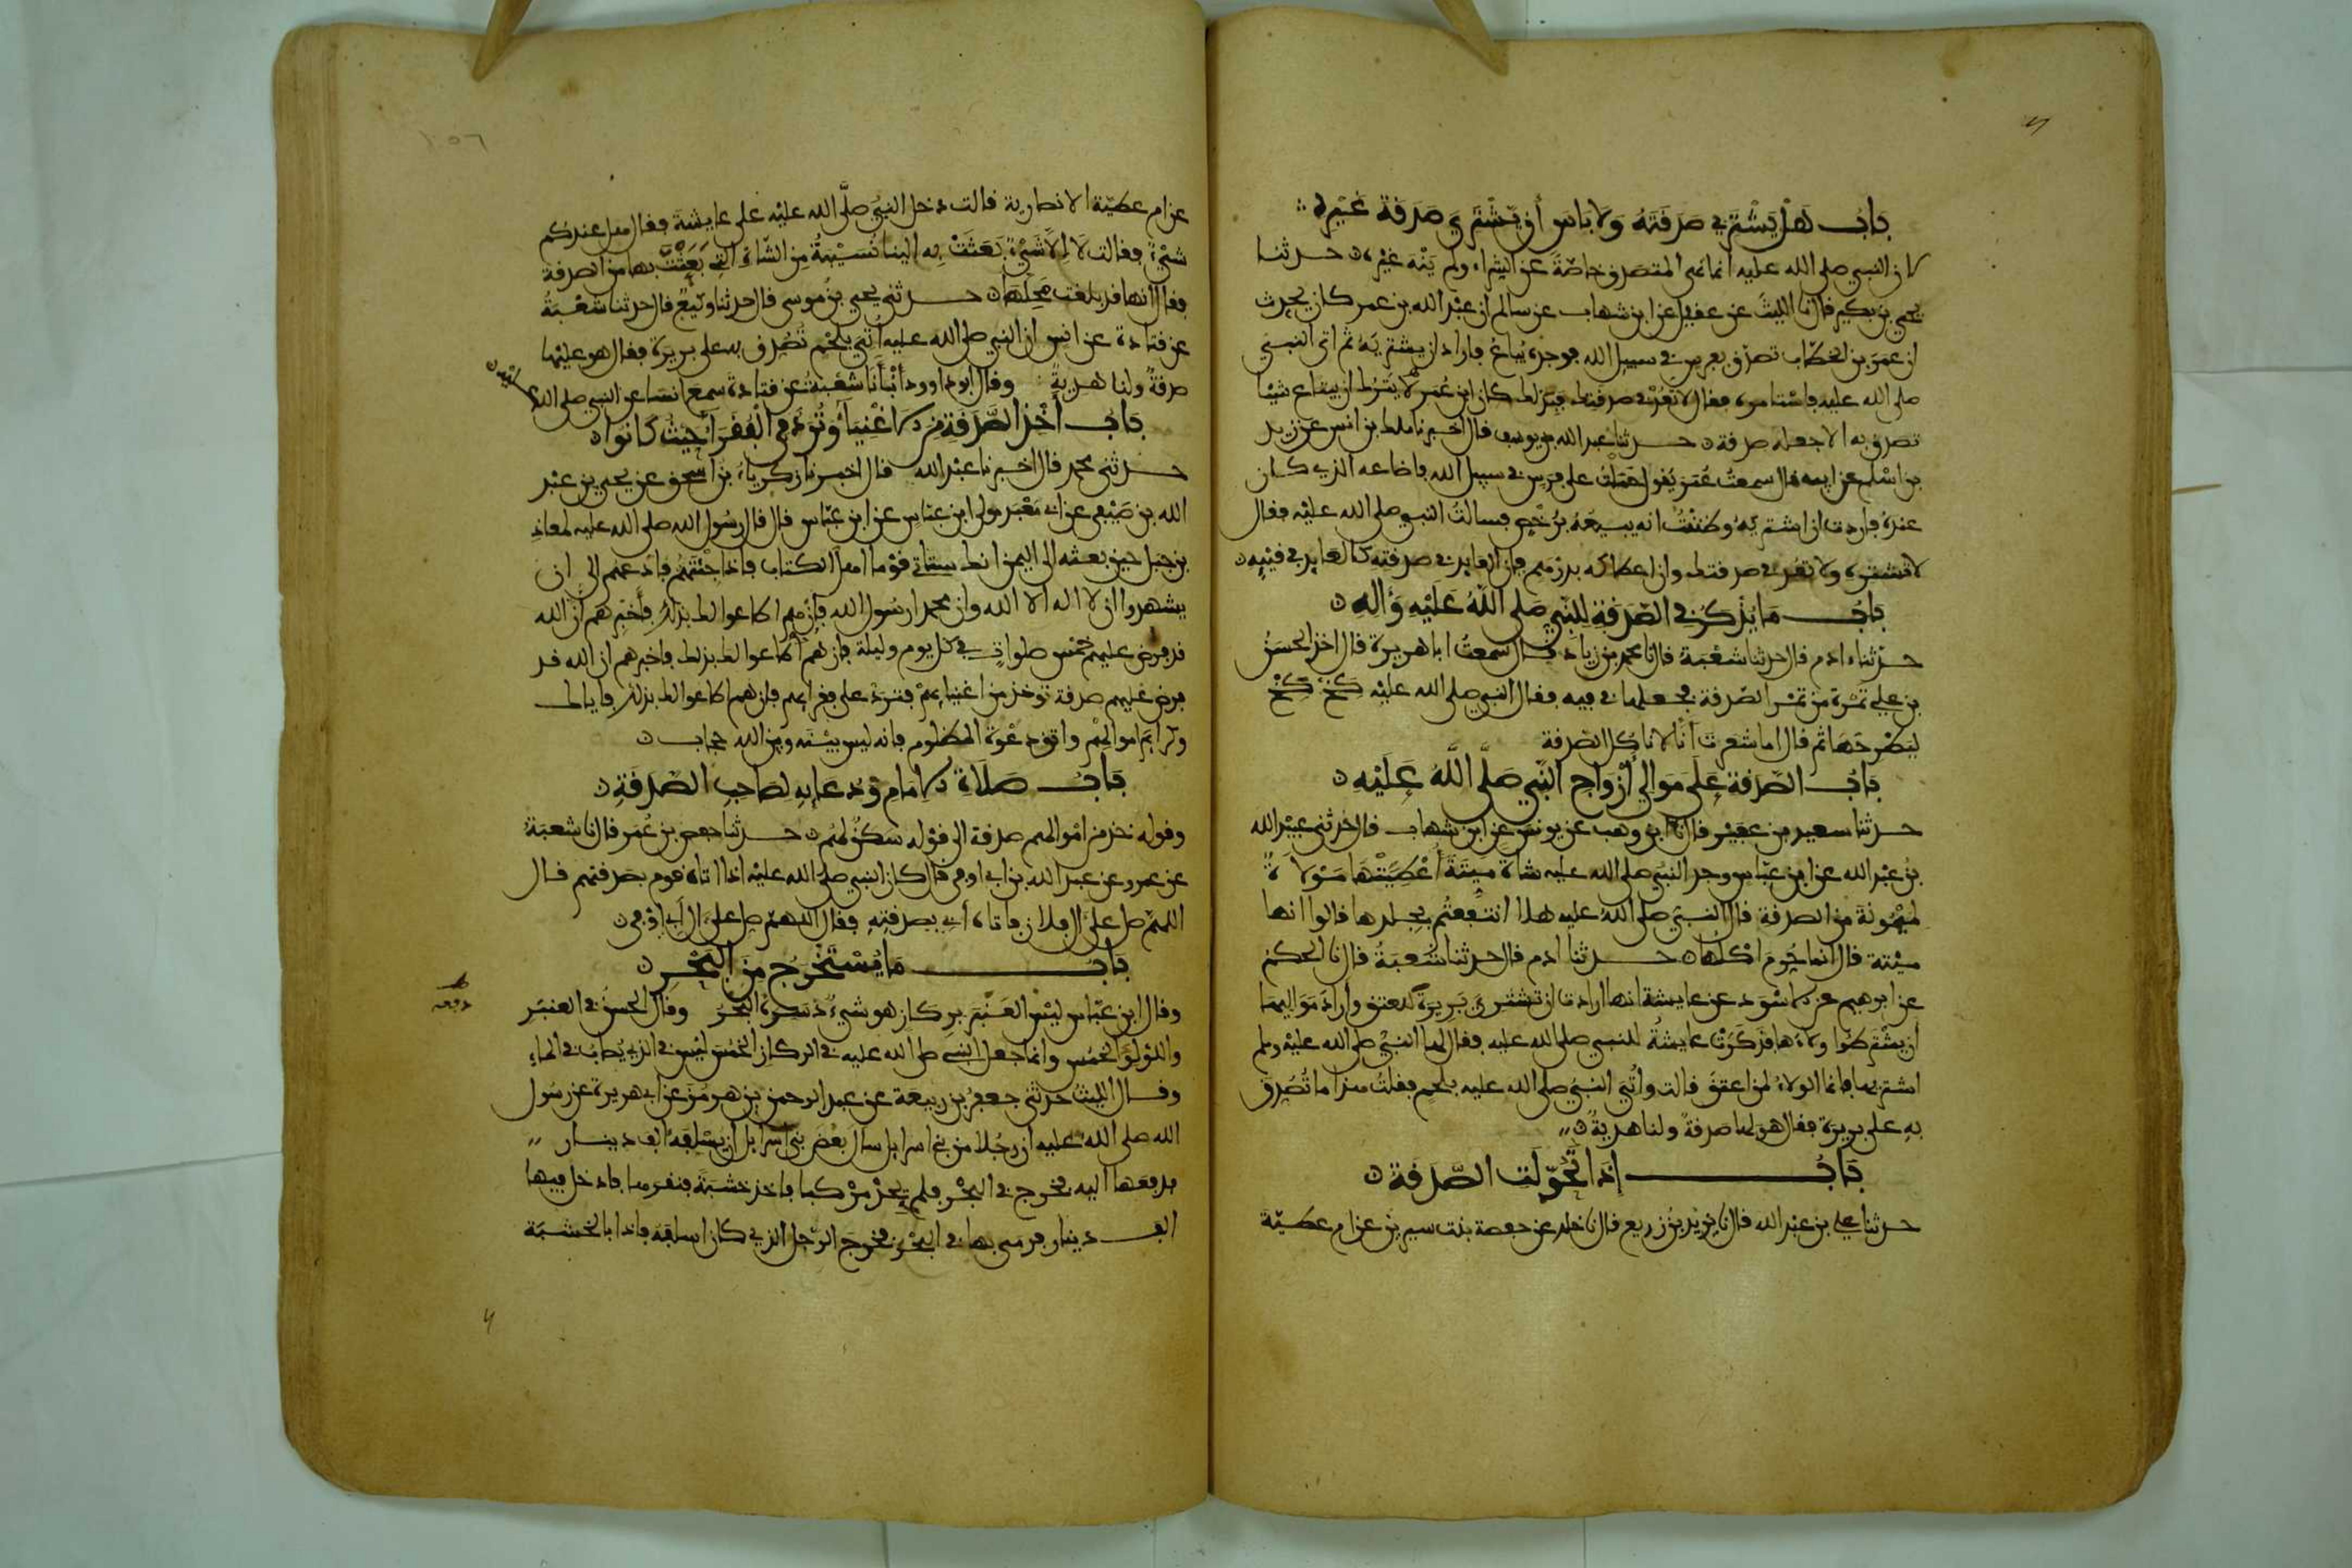 باب هل يشتري صدقته ولا باس أن يشتري صدقة غيره
لان النبي صلى الله عليه انما نهى المتصدق خاصة عن الشراء ولم ينه غيره حدثنا
يحيى بن بكير قال نا الليث عن عقيل عن ابن شهاب عن سالم ان عبد الله بن عمر كان يحدث
ان عمر بن الخطاب تصدق بفرس في سبيل الله فوجده يباع فاراد ان يشتريه ثم اتى النبي
صلى الله عليه فاستامره فقال لا تعد في صدقتك فبذلك كان ابن عمر لا يترك ان يبتاع شيئا
تصدق به الا جعله صدقة حدثنا عبد الله بن يوسف قال اخبرنا ملك بن انس عن زيد
بن اسلم عن ابيه قال سمعت عمر يقول حملت على فرس في سبيل الله فاضاعه الذي كان
عنده فاردت ان اشتريه وظننت انه يبيعه برخص فسالت النبي صلى الله عليه فقال
لا تشتره ولا تعد في صدقتك وان اعطاكه بدرهم فان العايد في صدقته كالعايد في قيئه
باب ما يذكر في الصدقة للنبي صلى الله عليه وءاله
حدثنا ءادم قال حدثنا شعبة قال نا محمد بن زياد قال سمعت ابا هريرة قال اخذ الحسن
بن علي تمرة من تمر الصدقة فجعلها في فيه فقال النبي صلى الله عليه كخ كخ
ليطرحها ثم قال اما شعرت أنا لا ناكل الصدقة
باب الصدقة على موالي أزواج النبي صلى الله عليه
حدثنا سعيد بن عفير قال نا ابن وهب عن يونس عن ابن شهاب قال حدثني عبيد الله
بن عبد الله عن ابن عباس وجد النبي صلى الله عليه شاة ميتة أعطيتها مولاة
لميمونة من الصدقة قال النبي صلى الله عليه هلا انتفعتم بجلدها قالوا انها
ميتة قال انما حرم اكلها حدثنا ادم قال حدثنا شعبة قال نا الحكم
عن ابرهيم عن الاسود عن عايشة انها ارادت ان تشتري بريرة للعتق وأراد مواليها
ان يشترطوا ولاءها فذكرت عايشة للنبي صلى الله عليه فقال لها النبي صلى الله عليه وسلم
اشتريها فانما الولاء لمن اعتق قالت وأتي النبي صلى الله عليه بلحم فقلت هذا ما تصدق
به على بريرة فقال هو لها صدقة ولنا هدية
باب إذا تحولت الصدقة
حدثنا علي بن عبد الله قال نا يزيد بن زريع قال نا خلد عن حفصة بنت سيرين عن ام عطية
عن ام عطية الانصارية قالت دخل النبي صلى الله عليه على عايشة فقال هل عندكم
شيء فقالت لا الا شيء بعثت به الينا نسيبة من الشاة التي بعثت بها من الصدقة
فقال انها قد بلغت محلها حدثني يحيى بن موسى قال حدثنا وكيع قال حدثنا شعبة
عن قتادة عن انس ان النبي صلى الله عليه أتي بلحم تصدق به على بريرة فقال هو عليها
صدقة ولنا هدية وقال ابو داوود أنبأنا شعبة عن قتادة سمع انسا عن النبي صلى الله عليه
باب أخذ الصدقة من الاغنياء وترد في الفقراء حيث كانوا
حدثني محمد قال اخبرنا عبد الله قال اخبرنا زكرياء بن اسحق عن يحيى بن عبد
الله بن صيفي عن ابي معبد مولى ابن عباس عن ابن عباس قال قال رسول الله صلى الله عليه لمعاذ
بن جبل حين بعثه الى اليمن انك ستاتي قوما اهل الكتاب فاذا جئتهم فادعهم الى ان
يشهدوا ان لا اله الا الله وان محمدا رسول الله فان هم اطاعوا لك بذلك فأخبرهم ان الله
قد فرض عليهم خمس صلوات في كل يوم وليلة فان هم اطاعوا لك بذلك فاخبرهم ان الله قد
فرض عليهم صدقة توخذ من اغنيايهم فترد على فقرايهم فان هم اطاعوا لك بذلك فاياك
وكرايم اموالهم واتق دعوة المظلوم فانه ليس بينه وبين الله حجاب
باب صلاة الامام ودعايه لصاحب الصدقة
وقوله خذ من اموالهم صدقة الى قوله سكن لهم حدثنا حفص بن عمر قال نا شعبة
عن عمرو عن عبد الله بن ابي اوفى قال كان النبي صلى الله عليه اذا اتاه قوم بصدقتهم قال
اللهم صل على ال فلان فاتاه أبي بصدقته فقال اللهم صل على ال أبي اوفى
باب ما يستخرج من البحر
وقال ابن عباس ليس العنبر بركاز هو شيء دسره البحر وقال الحسن في العنبر
دفعه
واللولؤ الخمس وانما جعل النبي صلى الله عليه في الركاز الخمس ليس في الذي يصاب في الماء
وقال الليث حدثني جعفر بن ربيعة عن عبد الرحمن بن هرمز عن ابي هريرة عن رسول
الله صلى الله عليه ان رجلا من بني اسرايل سال بعض بني اسرايل ان يسلفه الف دينار
فدفعها اليه فخرج في البحر فلم يجد مركبا فاخذ خشبة فنقرها فادخل فيها
الف دينار فرمى بها في البحر فخرج الرجل الذي كان اسلفه فاذا بالخشبة